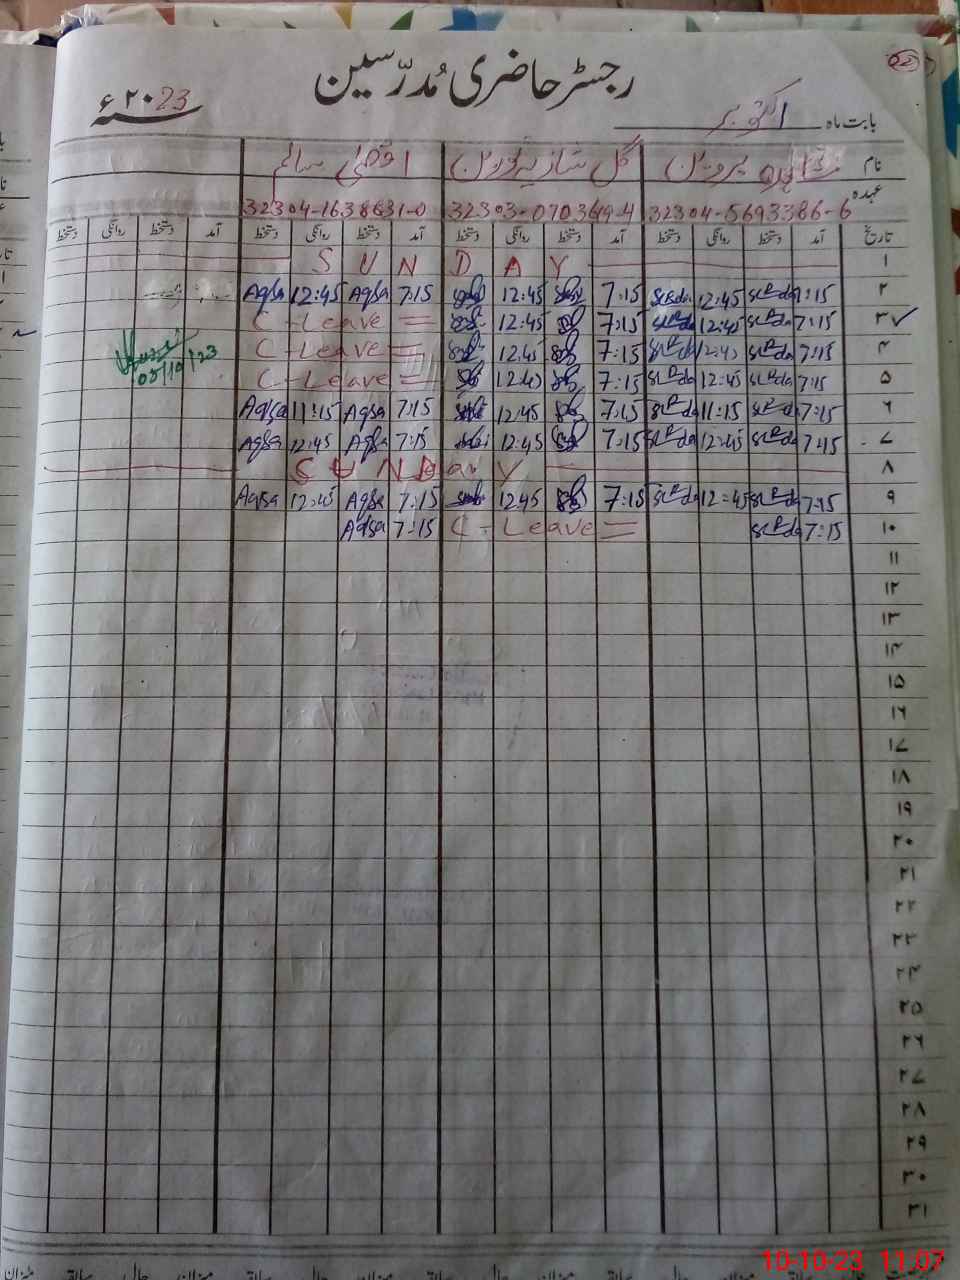 رجسٹر حاضری مُدرّسین
بابت ماہ اکتوبر ۲۰23 سنہ ء
نام گل شازیہ اقصیٰ سالم
عہدہ 32304-5693386-6 32303-0703649-4 32304-1638631-0
تاریخ آمد دستخط روانگی دستخط آمد دستخط روانگی دستخط آمد دستخط روانگی دستخط آمد دستخط روانگی دستخط
۱ SUNDAY
۲ 7:15 12:45 7:15 12:45 7:15 Aqsa 12:45 Aqsa
۳ 7:15 12:45 7:15 12:45 C-Leave =
۴ 7:15 12:45 7:15 12:45 C-Leave =
۵ 7:15 12:45 7:15 12:45 C-Leave = 05/10/23
۶ 7:15 11:15 7:15 12:45 7:15 Aqsa 11:15 Aqsa
۷ 7:15 12:45 7:15 12:45 7:15 Aqsa 12:45 Aqsa
۸ SUNDAY
۹ 7:15 12:45 7:15 12:45 7:15 Aqsa 12:45 Aqsa
۱۰ 7:15 C-Leave = 7:15 Aqsa
۱۱
۱۲
۱۳
۱۴
۱۵
۱۶
۱۷
۱۸
۱۹
۲۰
۲۱
۲۲
۲۳
۲۴
۲۵
۲۶
۲۷
۲۸
۲۹
۳۰
۳۱
10-10-23 11:07